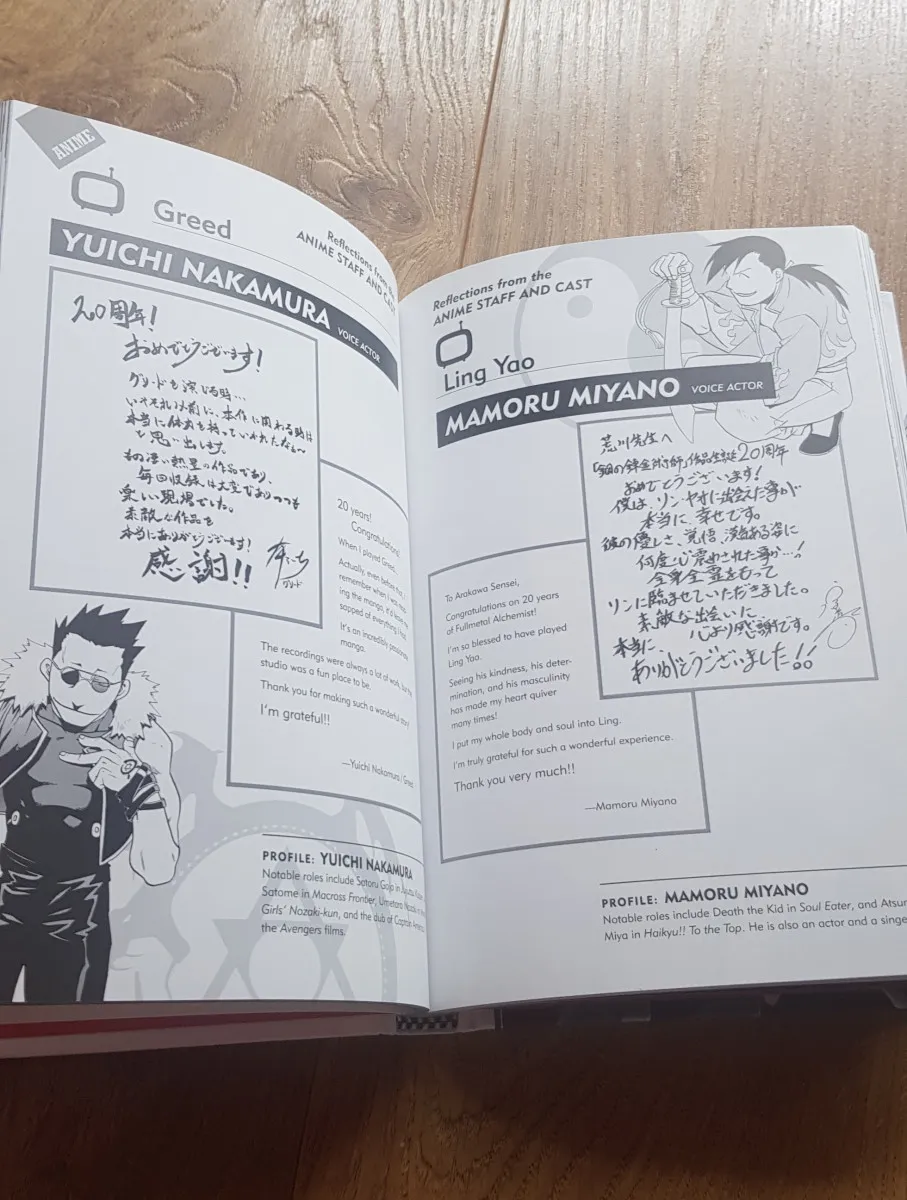 ANIME
Greed
Reflections from the
ANIME STAFF AND CAST
YUICHI NAKAMURA VOICE ACTOR
20周年!
おめでとうございます!
グリードを演じる時…
いやそれ以前に、本作に関わる時は
本当に体力を持っていかれたなぁ〜
と思い出します。
もの凄い熱量の作品であり、
毎回収録は大変でありつつも
楽しい現場でした。
素敵な作品を
本当にありがとうございます!
感謝!!
グリード
20 years!
Congratulations!
When I played Greed,
Actually, even before that, I
remember when I was
ing the manga, it'd
sapped of everything I
It's an incredibly passionate
manga.
The recordings were always a lot of work, but the
studio was a fun place to be.
Thank you for making such a wonderful story!
I'm grateful!!
—Yuichi Nakamura/Greed
PROFILE: YUICHI NAKAMURA
Notable roles include Satoru Gojo in Jujutsu
Satome in Macross Frontier, Umetaro Nozaki in
Girls' Nozaki-kun, and the dub of Captain America
the Avengers films.
Reflections from the
ANIME STAFF AND CAST
Ling Yao
MAMORU MIYANO VOICE ACTOR
荒川先生へ
「鋼の錬金術師」作品生誕20周年
おめでとうございます!
僕は、リン・ヤオに出会えた事が
本当に、幸せです。
彼の優しさ、覚悟、漢気ある姿に
何度心震わされた事か…!
全身全霊をもって
リンに臨ませていただきました。
素敵な出会いに、
心より感謝です。
本当に、
ありがとうございました!!
To Arakawa Sensei,
Congratulations on 20 years
of Fullmetal Alchemist!
I'm so blessed to have played
Ling Yao.
Seeing his kindness, his deter-
mination, and his masculinity
has made my heart quiver
many times!
I put my whole body and soul into Ling.
I'm truly grateful for such a wonderful experience.
Thank you very much!!
—Mamoru Miyana
PROFILE: MAMORU MIYANO
Notable roles include Death the Kid in Soul Eater, and Atsu
Miya in Haikyu!! To the Top. He is also an actor and a singe